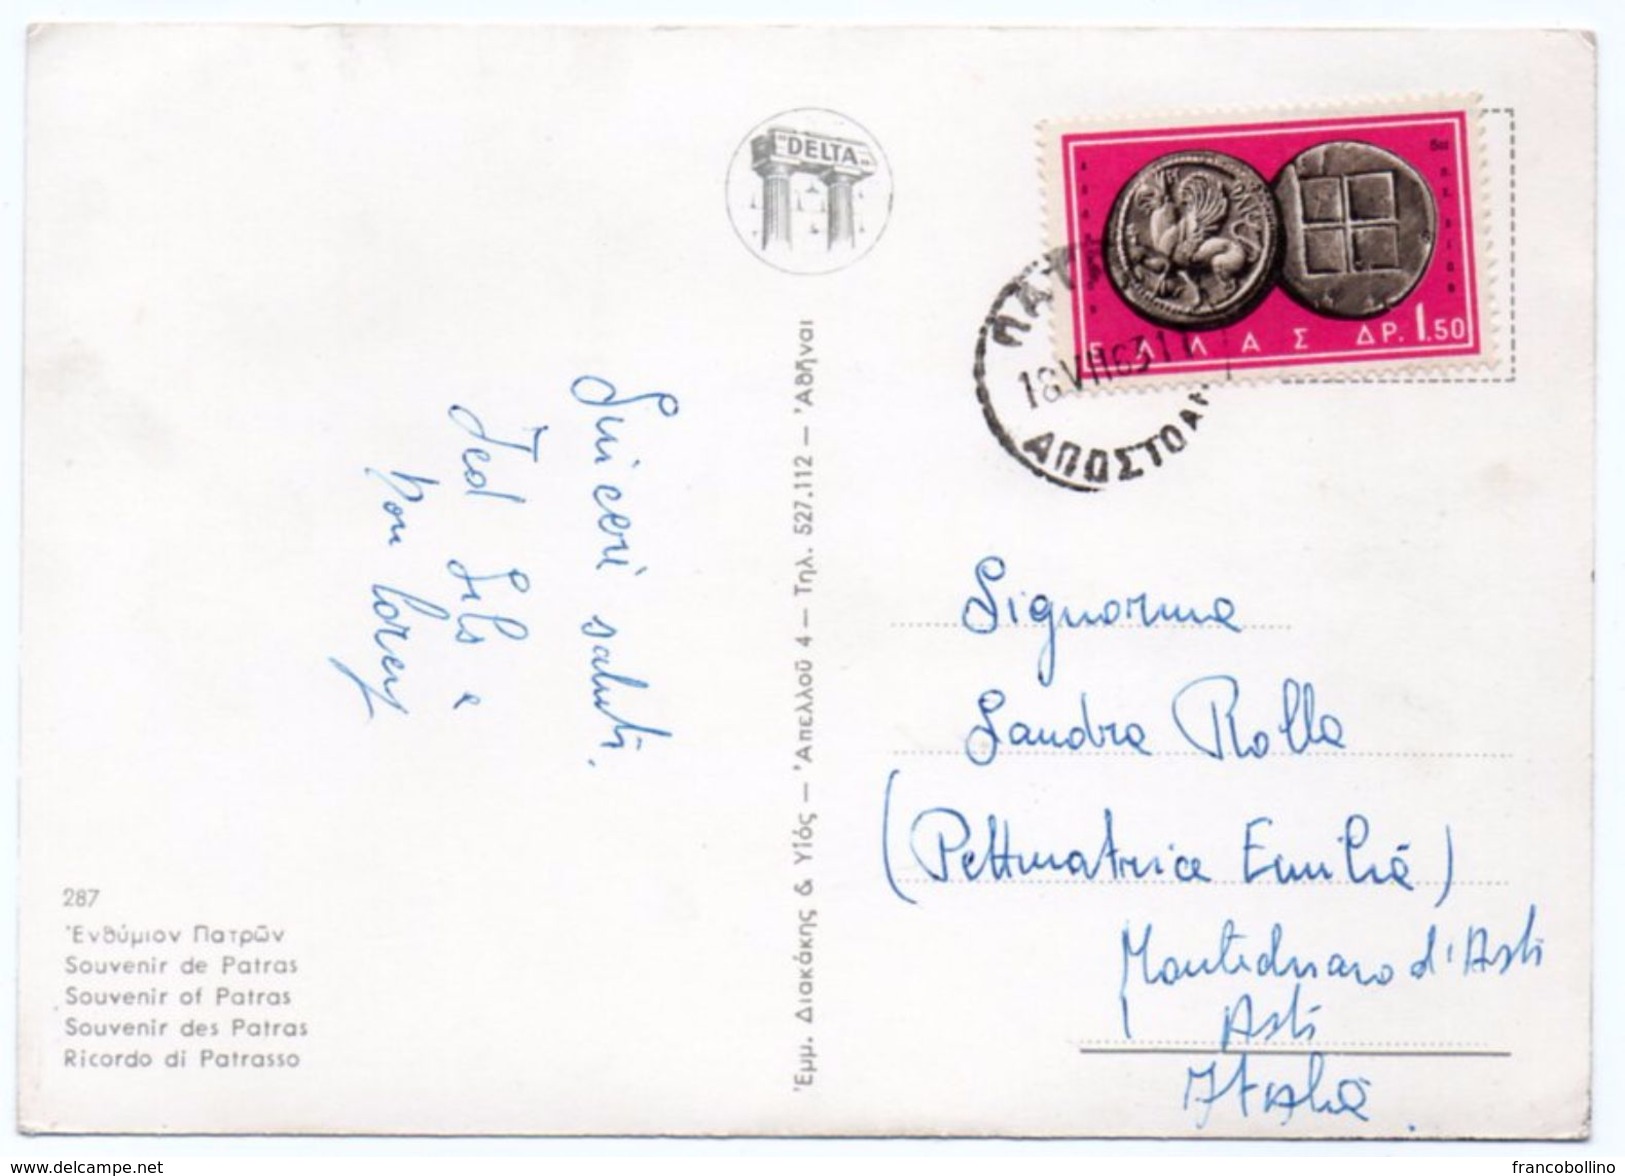 "DELTA"
ΕΛΛΑΣ ΔΡ. 1.50
18 VII 63 11
ΑΠΟΣΤΟΛ
Sinceri saluti.
287
Ἐνθύμιον Πατρῶν
Souvenir de Patras
Souvenir of Patras
Souvenir des Patras
Ricordo di Patrasso
Ἐμμ. Διακάκης & Υἱός — Ἀπελλοῦ 4 — Τηλ. 527.112 — Ἀθῆναι
Signorina
Sandra Rolla
(Pettinatrice Emilia)
d'Asti
Asti
Italia
francobollino
www.delcampe.net